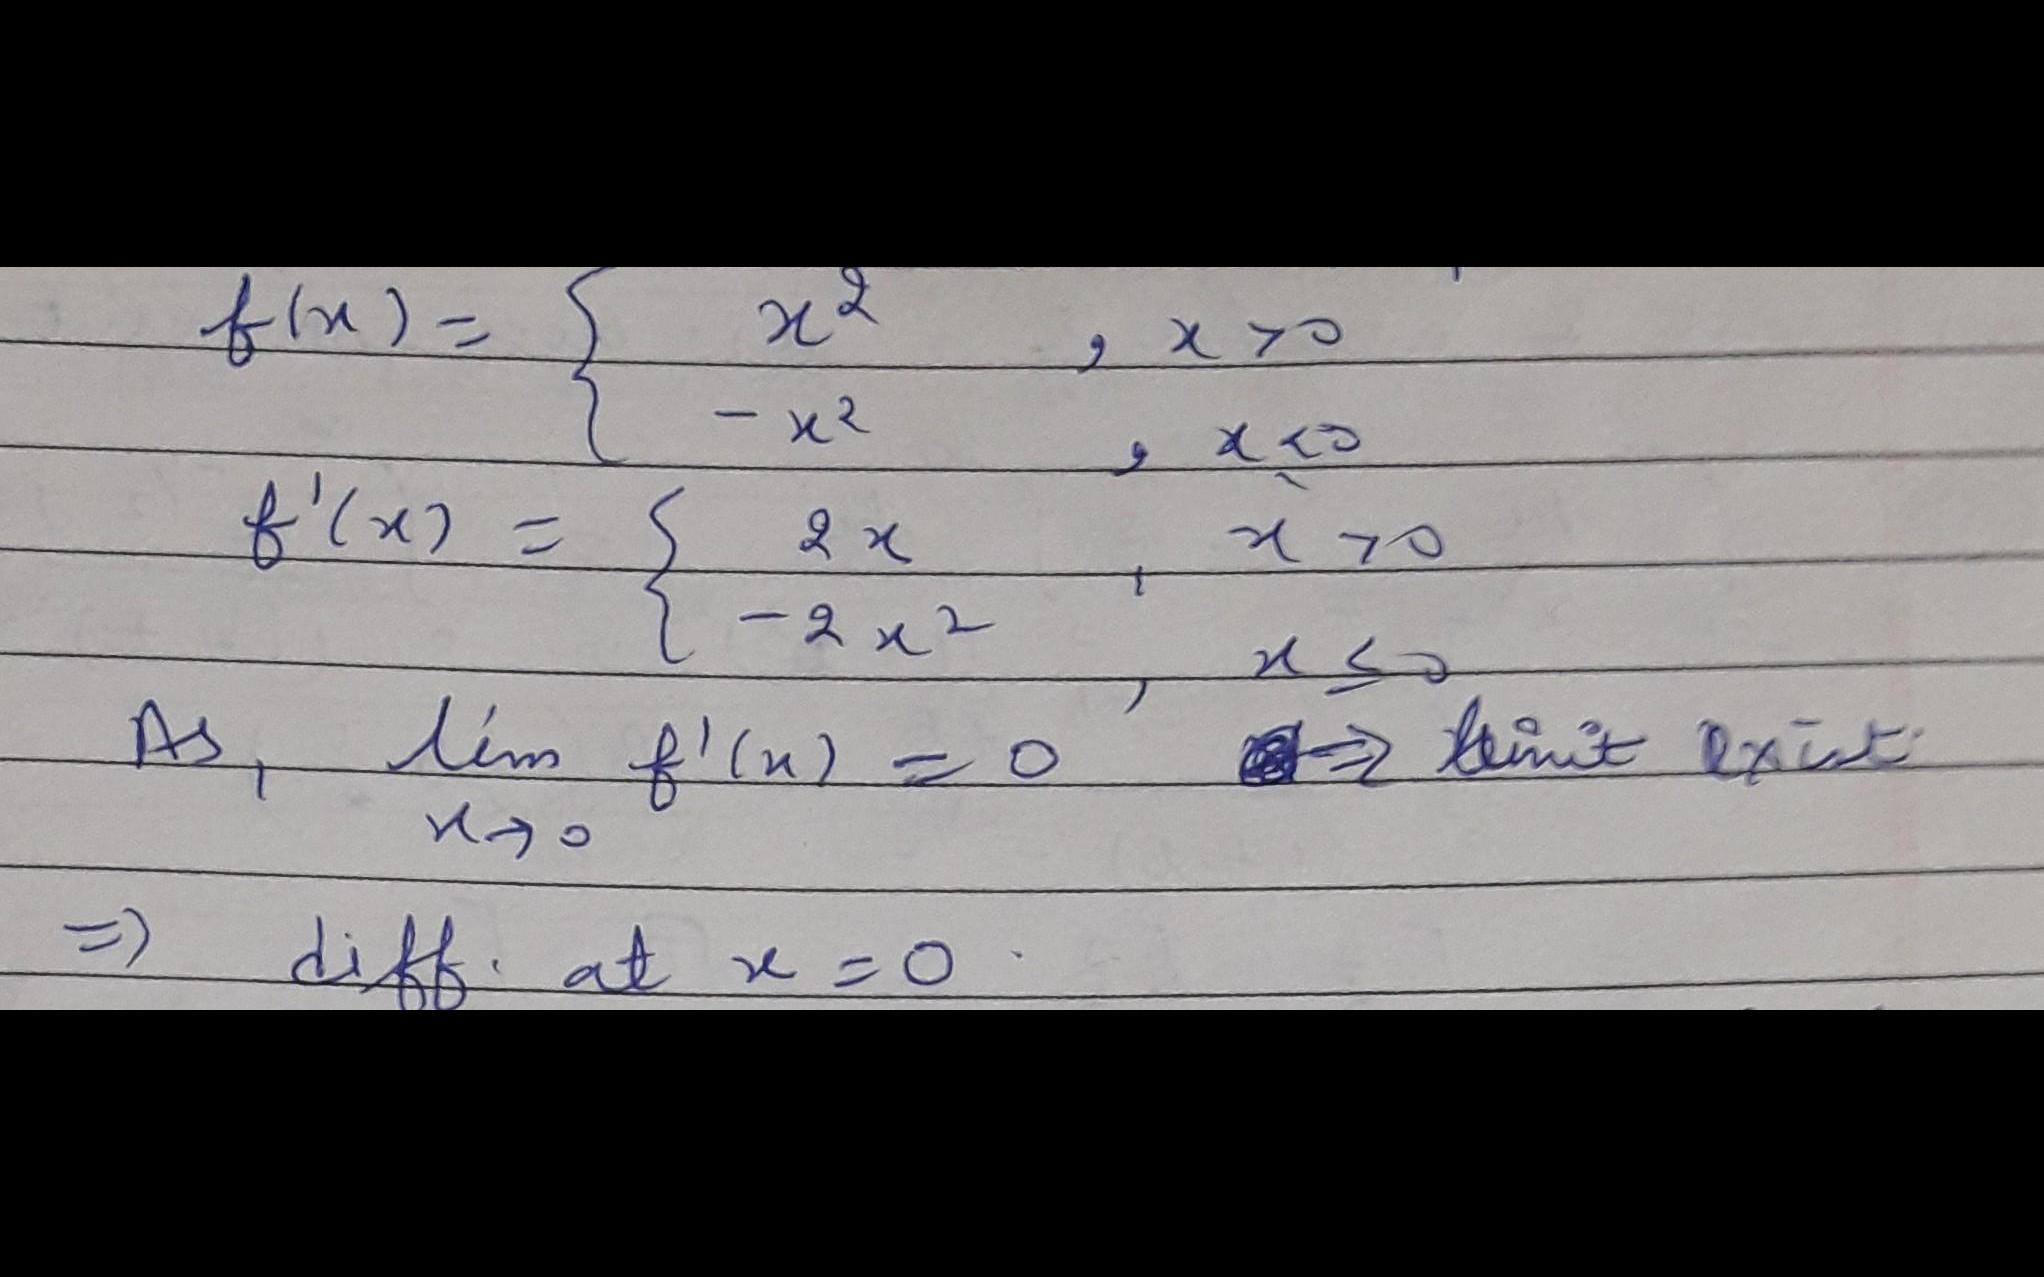 f(x) = { x² , x > 0
- x² , x ≤ 0
f'(x) = { 2x , x > 0
- 2x² , x ≤ 0
As, lim f'(x) = 0 ⇒ limit exist.
x→0
⇒ diff. at x = 0.